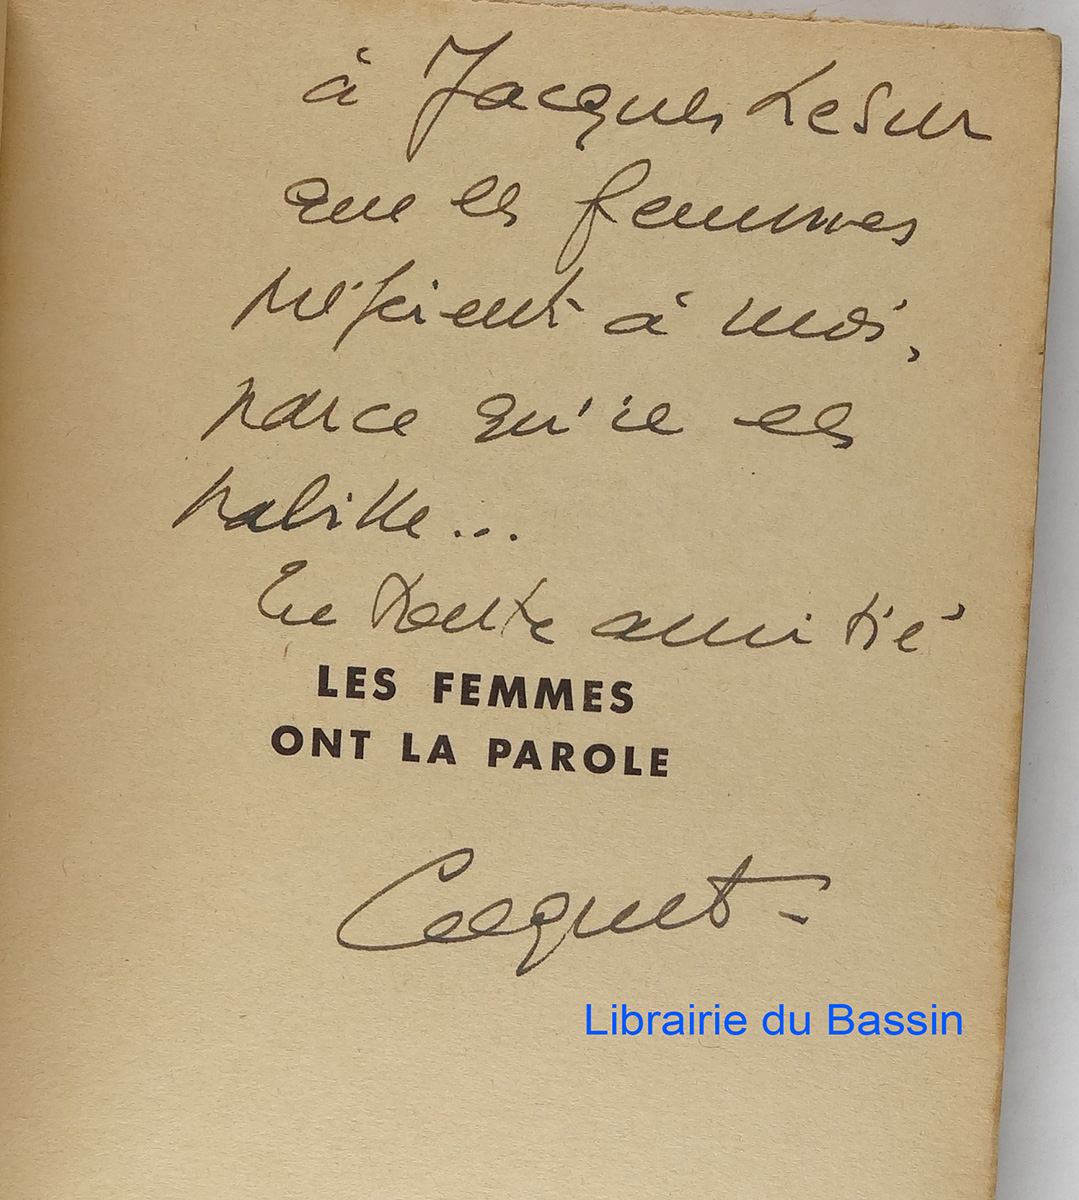 à Jacques Lesur
que les femmes
préfèrent à moi,
parce qu'il les
habille...
En toute amitié
LES FEMMES
ONT LA PAROLE
Librairie du Bassin